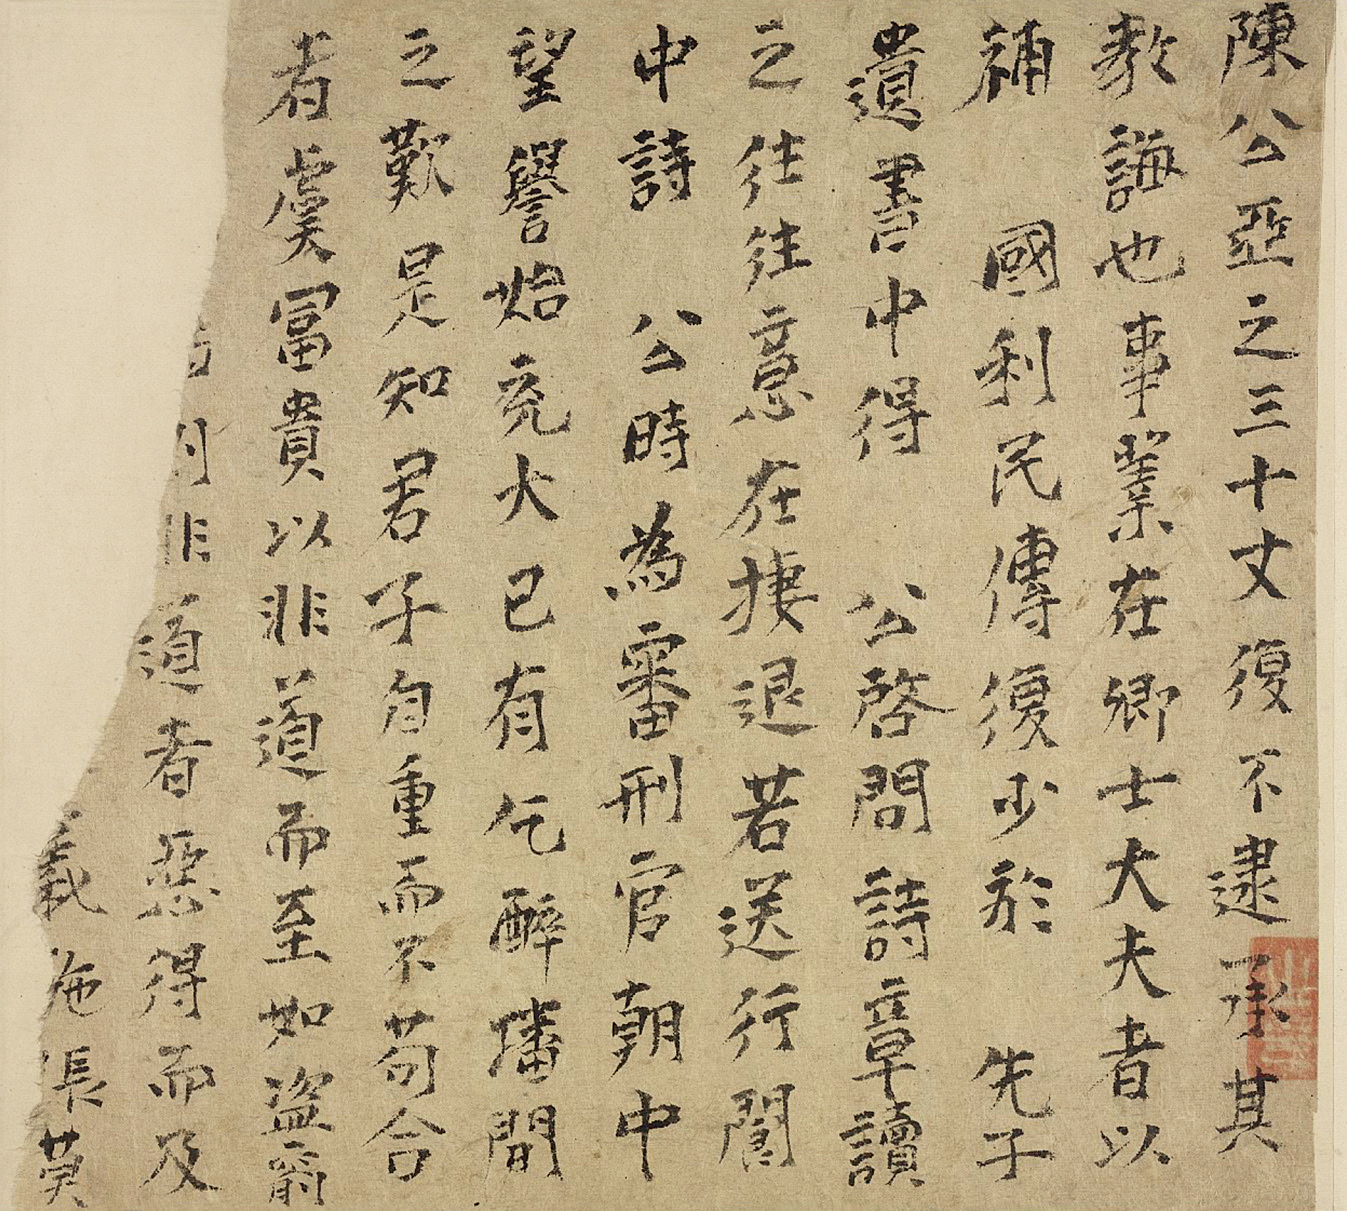 陳公亞之三十丈復不逮承其
教誨也事業在卿士大夫者以
補 國利民傳復少於 先子
遺書中得 公啓問詩章讀
之往往意在捿退若送行閬
中詩 公時為審刑官朝中
望譽始充大已有乞醉墦間
之歎是知君子自重而不苟合
者虞冨貴以非道而至如盜竊
非道者惡得而及
義施張莫